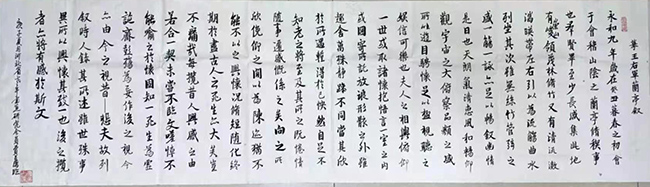 摹王右軍蘭亭叙
永和九年歲在癸丑暮春之初會
于會稽山陰之蘭亭脩稧事
也羣賢畢至少長咸集此地
有崇山峻領茂林脩竹又有清流激
湍暎帶左右引以為流觴曲水
列坐其次雖無絲竹管弦之
盛一觴一詠亦足以暢叙幽情
是日也天朗氣清惠風和暢仰
觀宇宙之大俯察品類之盛
所以遊目騁懷足以極視聽之
娛信可樂也夫人之相與俯仰
一世或取諸懷抱悟言一室之內
或因寄所託放浪形骸之外雖
趣舍萬殊静躁不同當其欣
於所遇蹔得於己怏然自足不
知老之將至及其所之既惓情
隨事遷感慨係之矣向之所
欣俛仰之間以為陳迹猶不
能不以之興懷況脩短隨化終
期於盡古人云死生亦大矣豈
不痛哉每攬昔人興感之由
若合一契未嘗不臨文嗟悼不
能喻之於懷固知一死生為虛
誕齊彭殤為妄作後之視今
亦由今之視昔悲夫故列
叙時人錄其所述雖世殊事
異所以興懷其致一也後之攬
者亦將有感於斯文